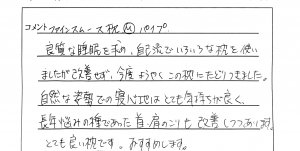 コメント ファインスムース枕 Ⓜ パイプ
良質な睡眠を求め、自己流でいろいろな枕を使い
ましたが改善せず、今度ようやくこの枕にたどりつきました。
自然な姿勢での寝心地はとても気持が良く、
長年悩みの種であった首、肩のこりも改善しつつあります。
とても良い枕です。おすすめします。